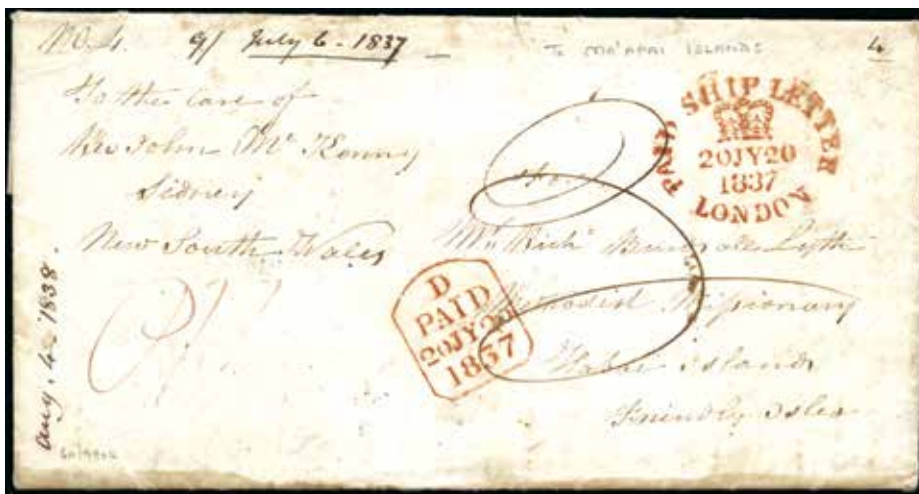 No. 4. of July 6 - 1837
To HA'APAI ISLANDS
4
To the Care of
Mr John Mc Kenny
Sidney
New South Wales
PAID SHIP LETTER
20JY20
1837
LONDON
Mr Richd Lyth
Methodist Missionary
Habai island
Friendly Isles
D
PAID
20JY20
1837
Aug. 4. 1838.